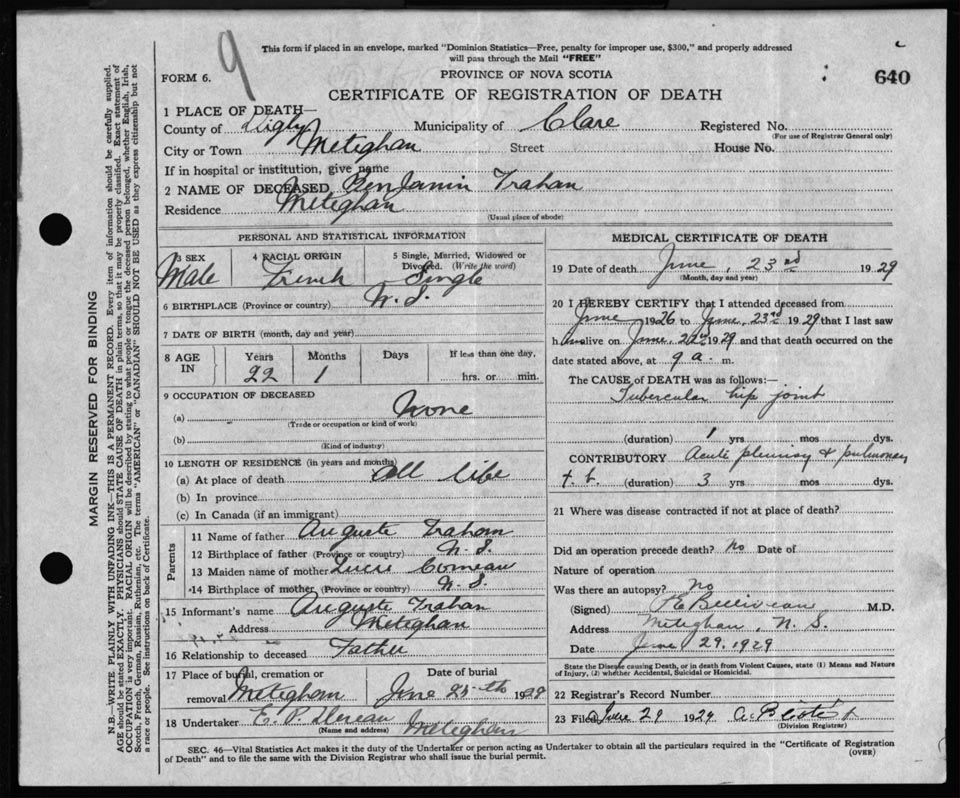 9
This form if placed in an envelope, marked "Dominion Statistics—Free, penalty for improper use, $300," and properly addressed
will pass through the Mail "FREE"
FORM 6.
PROVINCE OF NOVA SCOTIA
640
CERTIFICATE OF REGISTRATION OF DEATH
1 PLACE OF DEATH—
County of Digby Municipality of Clare Registered No.
(For use of Registrar General only)
City or Town Meteghan Street House No.
If in hospital or institution, give name
2 NAME OF DECEASED Benjamin Trahan
Residence Meteghan
(Usual place of abode)
PERSONAL AND STATISTICAL INFORMATION
3 SEX 4 RACIAL ORIGIN 5 Single, Married, Widowed or
Divorced. (Write the word)
Male French Single
6 BIRTHPLACE (Province or country) N. S.
7 DATE OF BIRTH (month, day and year)
8 AGE IN Years Months Days If less than one day,
22 1 hrs. or min.
9 OCCUPATION OF DECEASED
(a) None
(Trade or occupation or kind of work)
(b)
(Kind of industry)
10 LENGTH OF RESIDENCE (in years and months)
(a) At place of death all life
(b) In province
(c) In Canada (if an immigrant)
Parents
11 Name of father Auguste Trahan
12 Birthplace of father (Province or country) N. S.
13 Maiden name of mother Lucie Comeau
14 Birthplace of mother (Province or country) N. S.
15 Informant's name Auguste Trahan
Address Meteghan
16 Relationship to deceased Father
17 Place of burial, cremation or removal Meteghan
Date of burial June 25th 1929
18 Undertaker E. P. Meteghan
(Name and address)
MEDICAL CERTIFICATE OF DEATH
19 Date of death June, 23rd 1929
(Month, day and year)
20 I HEREBY CERTIFY that I attended deceased from
June 1926 to June, 23rd 1929 that I last saw
him alive on June, 22nd 1929 and that death occurred on the
date stated above, at 9 a. m.
The CAUSE OF DEATH was as follows:—
Tubercular hip joint
(duration) 1 yrs. mos. dys.
CONTRIBUTORY Acute pleurisy & pulmonary
t. b. (duration) 3 yrs. mos. dys.
21 Where was disease contracted if not at place of death?
Did an operation precede death? no Date of
Nature of operation
Was there an autopsy? no
(Signed) P E Belliveau M.D.
Address Meteghan, N. S.
Date June 29, 1929
State the Disease causing Death, or in death from Violent Causes, state (1) Means and Nature
of Injury, (2) whether Accidental, Suicidal or Homicidal.
22 Registrar's Record Number
23 Filed June 29 1929
(Division Registrar)
SEC. 46—Vital Statistics Act makes it the duty of the Undertaker or person acting as Undertaker to obtain all the particulars required in the "Certificate of Registration
of Death" and to file the same with the Division Registrar who shall issue the burial permit.
(OVER)
MARGIN RESERVED FOR BINDING
N.B.—WRITE PLAINLY WITH UNFADING INK—THIS IS A PERMANENT RECORD. Every item of information should be carefully supplied.
AGE should be stated EXACTLY. PHYSICIANS should STATE CAUSE OF DEATH in plain terms, so that it may be properly classified. Exact statement of
OCCUPATION is very important. RACIAL ORIGIN will be described by stating to what people or tongue the deceased person belonged, whether English, Irish,
Scotch, French, German, Russian, Ruthenian, etc. The terms "AMERICAN" or "CANADIAN" SHOULD NOT BE USED as they express citizenship but not
a race or people. See instructions on back of Certificate.